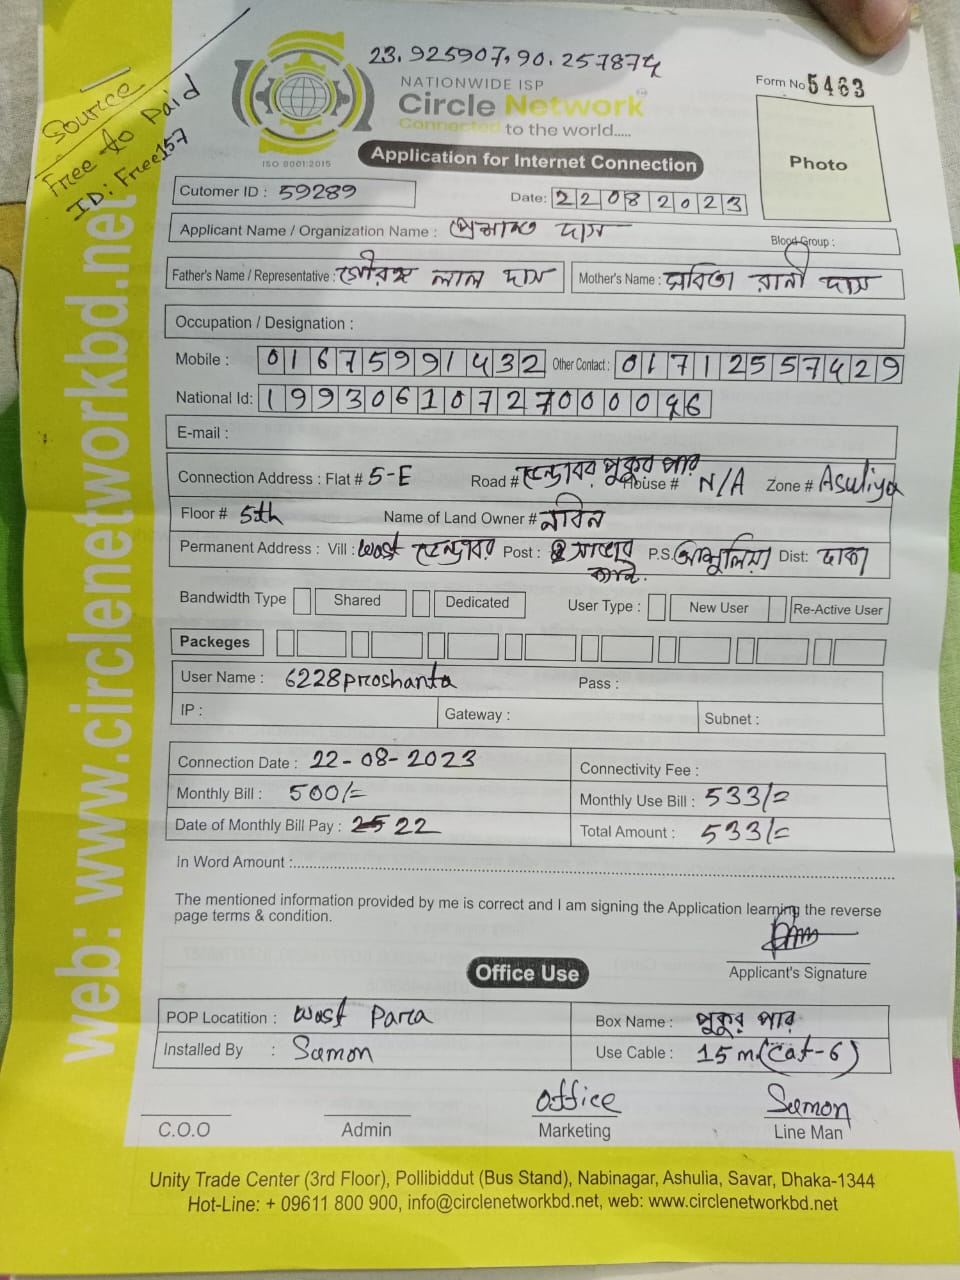 23.925907,90.257874
Source
Free to Paid
ID: Free157
NATIONWIDE ISP
Circle Network
Connected to the world.....
ISO 9001:2015
Form No 5463
Photo
Application for Internet Connection
Cutomer ID : 59289
Date: 22082023
Applicant Name / Organization Name : প্রশান্ত দাস
Blood Group :
Father's Name / Representative : গৌরঙ্গ লাল দাস Mother's Name : সবিতা রানী দাস
Occupation / Designation :
Mobile : 01675991432 Other Contact : 01712557429
National Id: 19930610727000096
E-mail :
Connection Address : Flat # 5-E Road # পুকুর পার House # N/A Zone # Asuliya
Floor # 5th Name of Land Owner #
Permanent Address : Vill : West Post : P.S. আশুলিয়া Dist: ঢাকা
Bandwidth Type Shared Dedicated User Type : New User Re-Active User
Packeges
User Name : 6228proshanta Pass :
IP : Gateway : Subnet :
Connection Date : 22-08-2023 Connectivity Fee :
Monthly Bill : 500/= Monthly Use Bill : 533/=
Date of Monthly Bill Pay : 22 Total Amount : 533/=
In Word Amount :
The mentioned information provided by me is correct and I am signing the Application learning the reverse
page terms & condition.
Applicant's Signature
Office Use
POP Locatition : West Para Box Name : পুকুর পার
Installed By : Sumon Use Cable : 15 m (Cat-6)
Office Sumon
C.O.O Admin Marketing Line Man
Unity Trade Center (3rd Floor), Pollibiddut (Bus Stand), Nabinagar, Ashulia, Savar, Dhaka-1344
Hot-Line: + 09611 800 900, info@circlenetworkbd.net, web: www.circlenetworkbd.net
web: www.circlenetworkbd.net